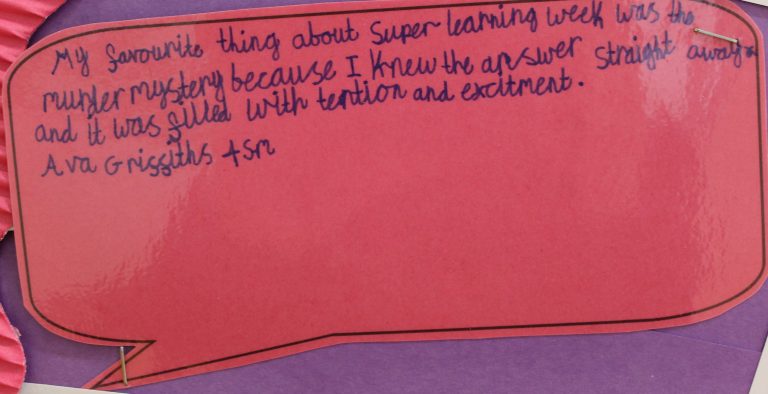 My favourite thing about Super learning week was the
murder mystery because I knew the answer straight away
and it was filled with tention and excitment.
Ava Griffiths